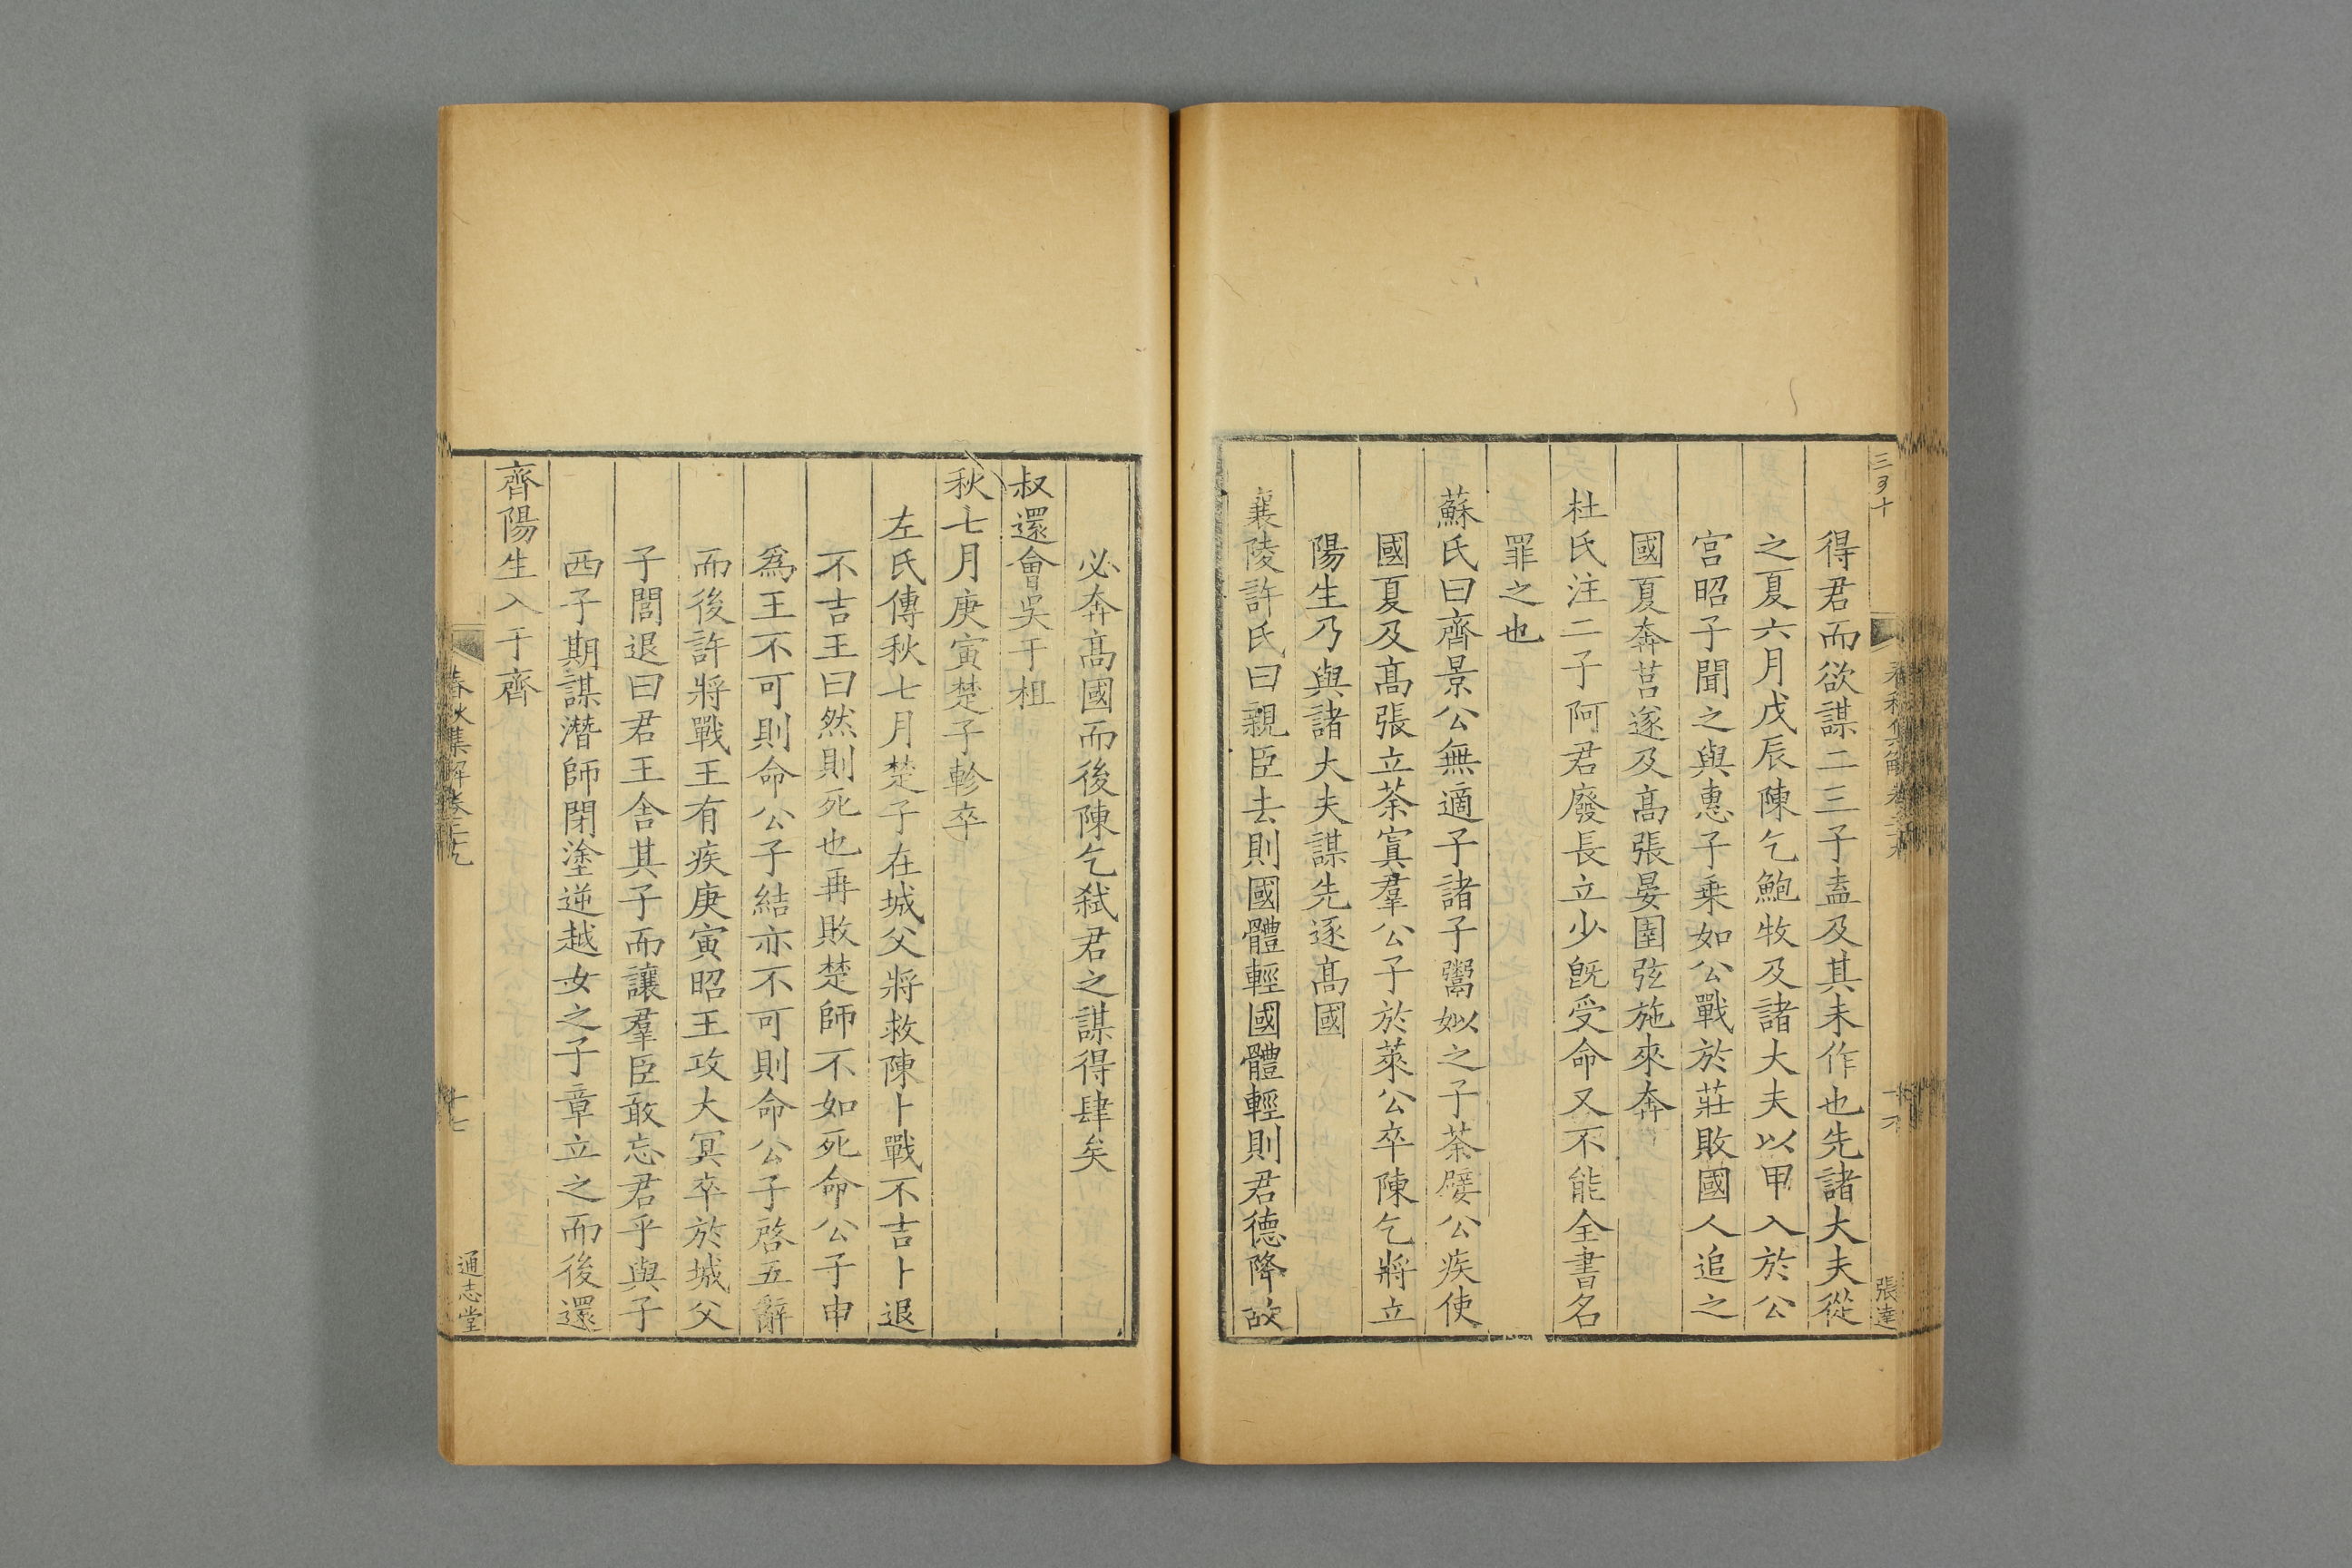 得君而欲謀二三子盍及其未作也先諸大夫從
之夏六月戊辰陳乞鮑牧及諸大夫以甲入於公
宮昭子聞之與惠子乘如公戰於莊敗國人追之
國夏奔莒遂及高張晏圉弦施來奔
杜氏注二子阿君廢長立少旣受命又不能全書名
罪之也
蘇氏曰齊景公無適子諸子鬻姒之子荼嬖公疾使
國夏及高張立荼寘羣公子於萊公卒陳乞將立
陽生乃與諸大夫謀先逐高國
襄陵許氏曰親臣去則國體輕國體輕則君德降故
張達
必奔高國而後陳乞弒君之謀得肆矣
叔還會吳于柤
秋七月庚寅楚子軫卒
左氏傳秋七月楚子在城父將救陳卜戰不吉卜退
不吉王曰然則死也再敗楚師不如死命公子申
爲王不可則命公子結亦不可則命公子啓五辭
而後許將戰王有疾庚寅昭王攻大冥卒於城父
子閭退曰君王舍其子而讓羣臣敢忘君乎與子
西子期謀潛師閉塗逆越女之子章立之而後還
齊陽生入于齊
春秋集解卷二十九
十七
通志堂